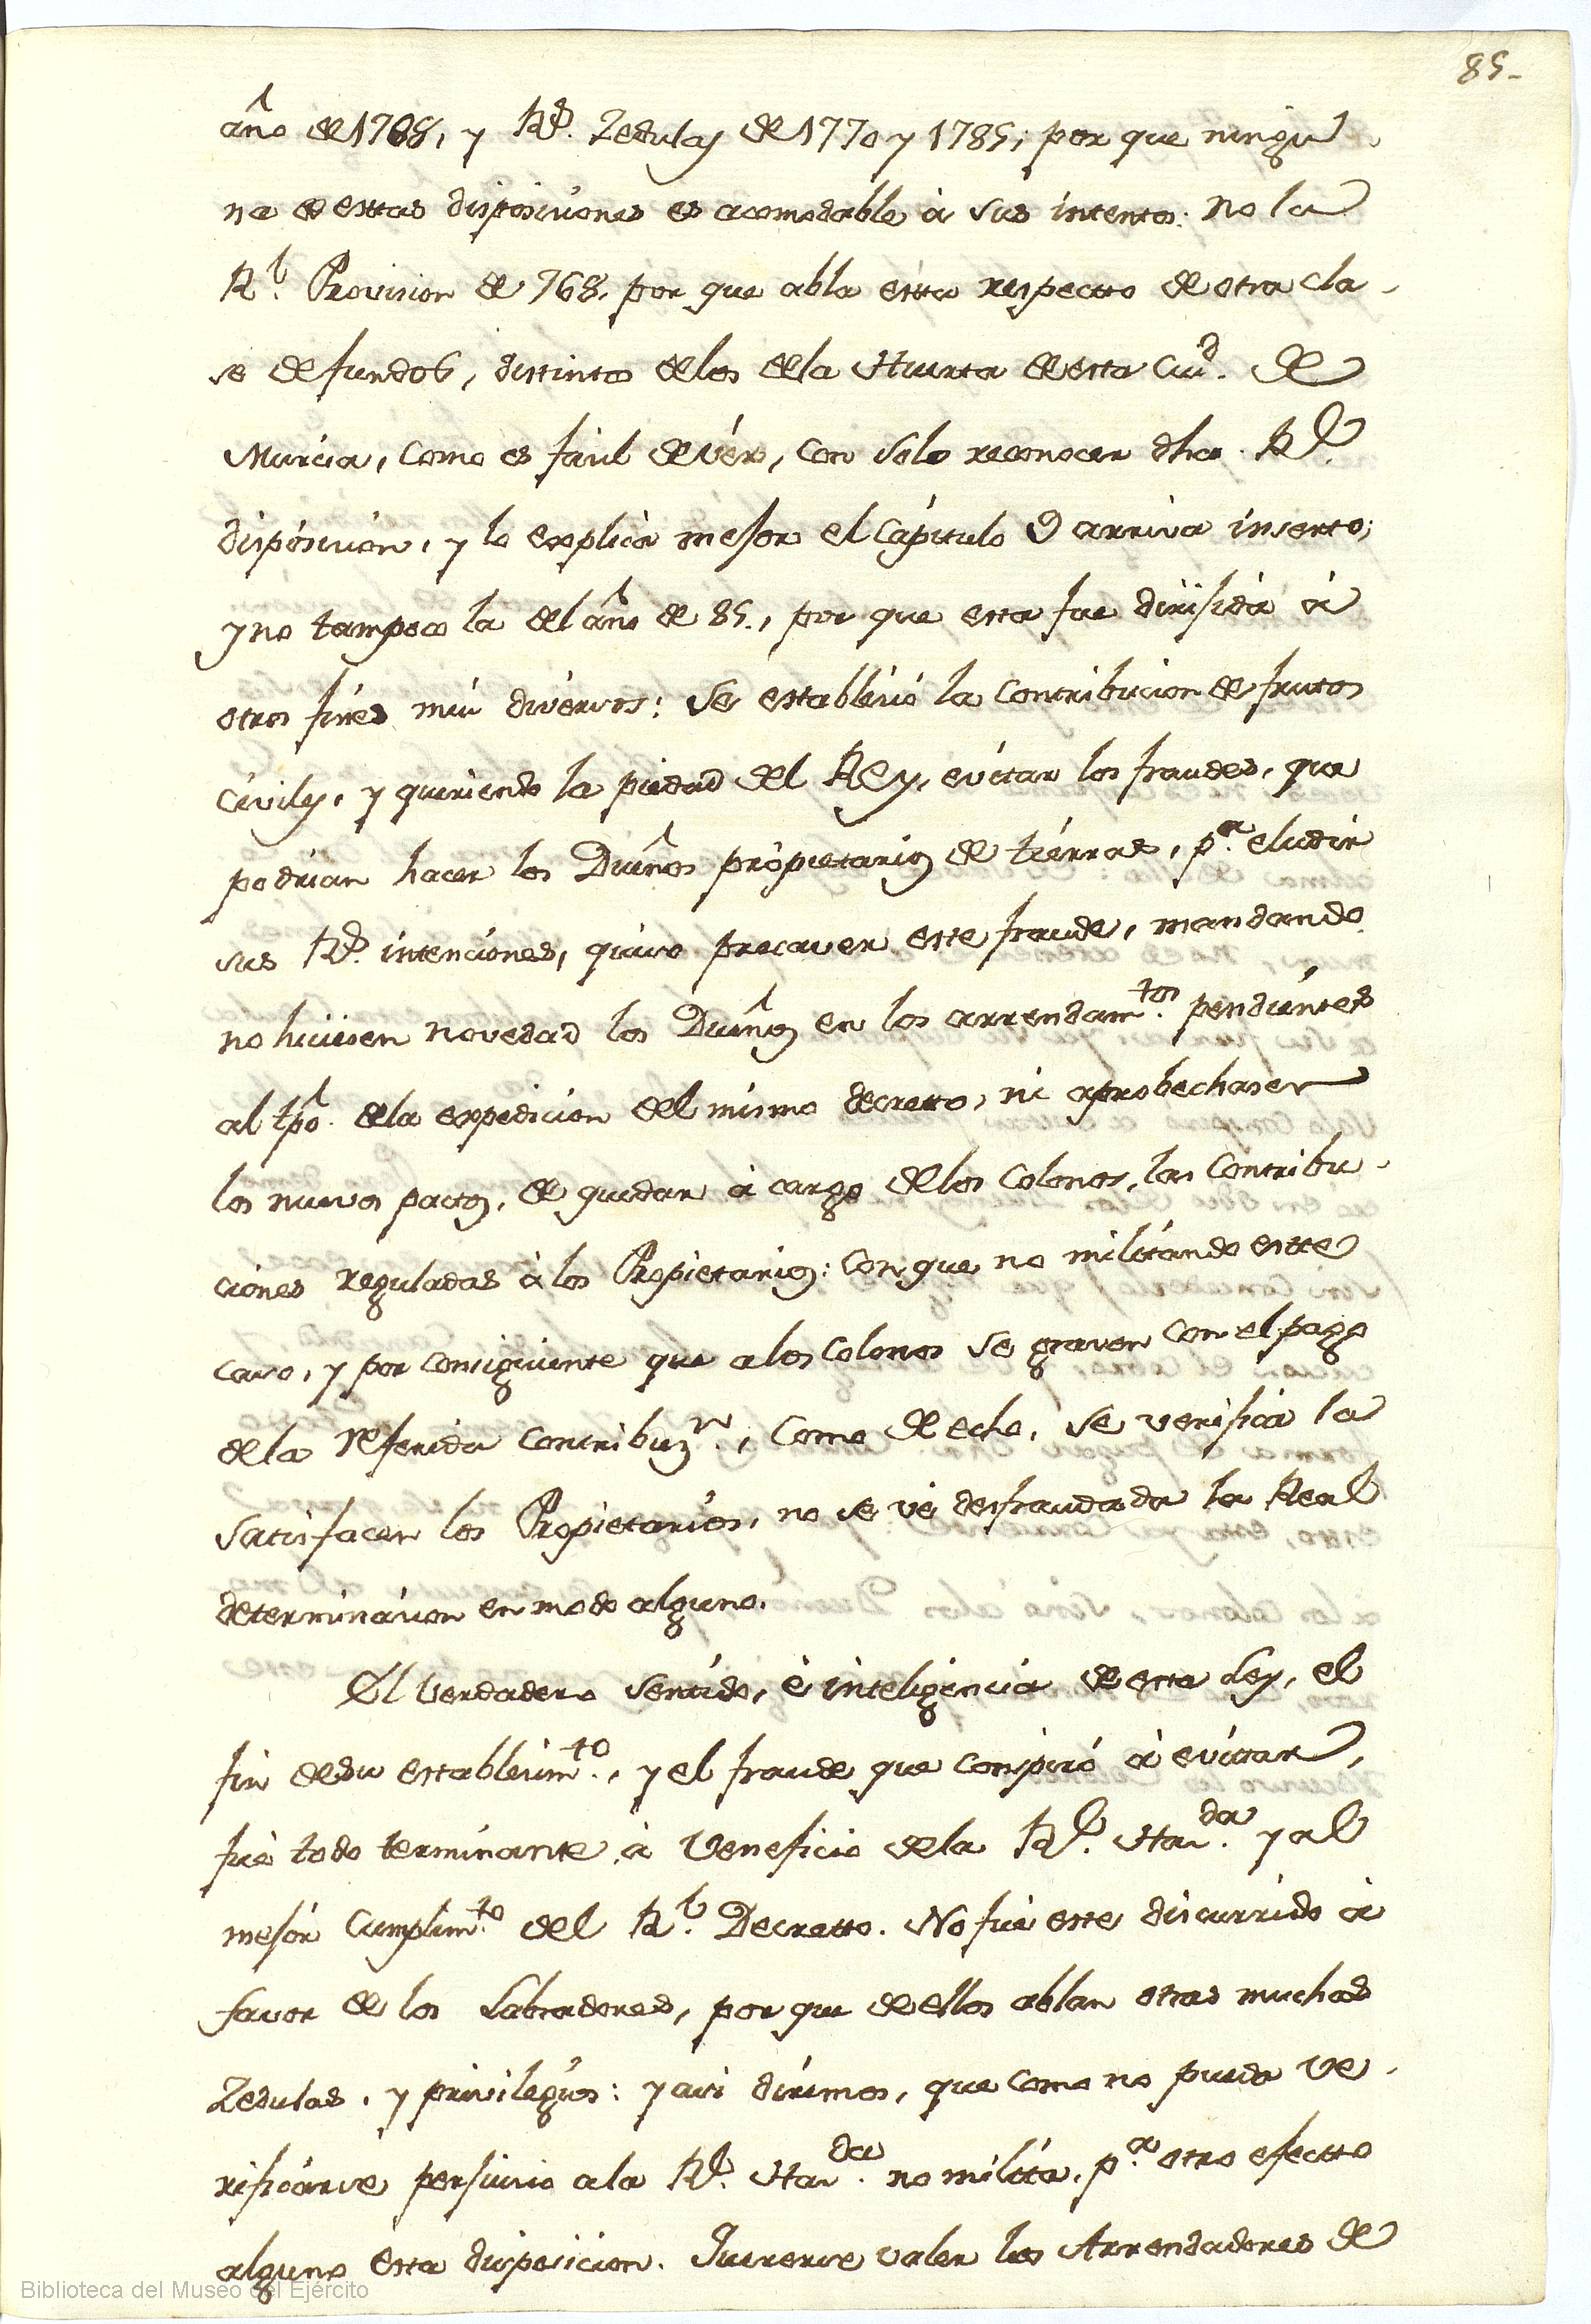 85-
año de 1768, y R.s Zedulas de 1770 y 1785; por que ningu-
na de estas disposiciones es acomodable à sus intentos: no la
R.l Provision de 768. por que abla estta respectto de otra cla-
se de fundos, distintos de los de la Huerta de esta Ciu.d de
Murcia, como es fácil de vér, con solo reconocer dha R.l
disposicion, y lo explica mejor el Capitulo 9 arriva inserto;
y no tampoco la del año de 85., por que esta fue dirijida à
otros fines mui diversos: Se estableció la Contribucion de frutos
civiles, y queriendo la piedad del Rey, evitar los fraudes, que
podrian hacer los Dueños propietarios de tierras, p.a eludir
sus R.s intenciones, quiso precaver este fraude, mandando
no hiciesen novedad los Dueños en los arrendam.tos pendientes
al tpo. de la expedicion del mismo decretto, ni aprobechasen
los nuevos pactos, de quedar à cargo de los Colonos, las Contribu-
ciones reguladas à los Propietarios: Con que no militando estte
caso, y por consiguiente que a los Colonos se graven con el pago
de la referida contribuz.n, como de echo, se verifica la
satisfacen los Propietarios, no se vé desfraudada la Real
determinacion en modo alguno.
El verdadero sentido, è inteligencia de esta Ley, el
fin de su establecim.to, y el fraude que conspiró à evitar,
fué todo terminante à veneficio de la R.l Haz.da y al
mejór Cumplim.to del R.l Decretto. No fué este discurrido à
favor de los Labradores, por que de ellos ablan otras muchas
Zedulas, y privilegios: y asi dirémos, que como no pueda ve-
rificárse perjuicio a la R.l Haz.da no milita, p.a otro efectto
alguno esta disposicion. Quererse valer los Arrendadores de
Biblioteca del Museo del Ejército